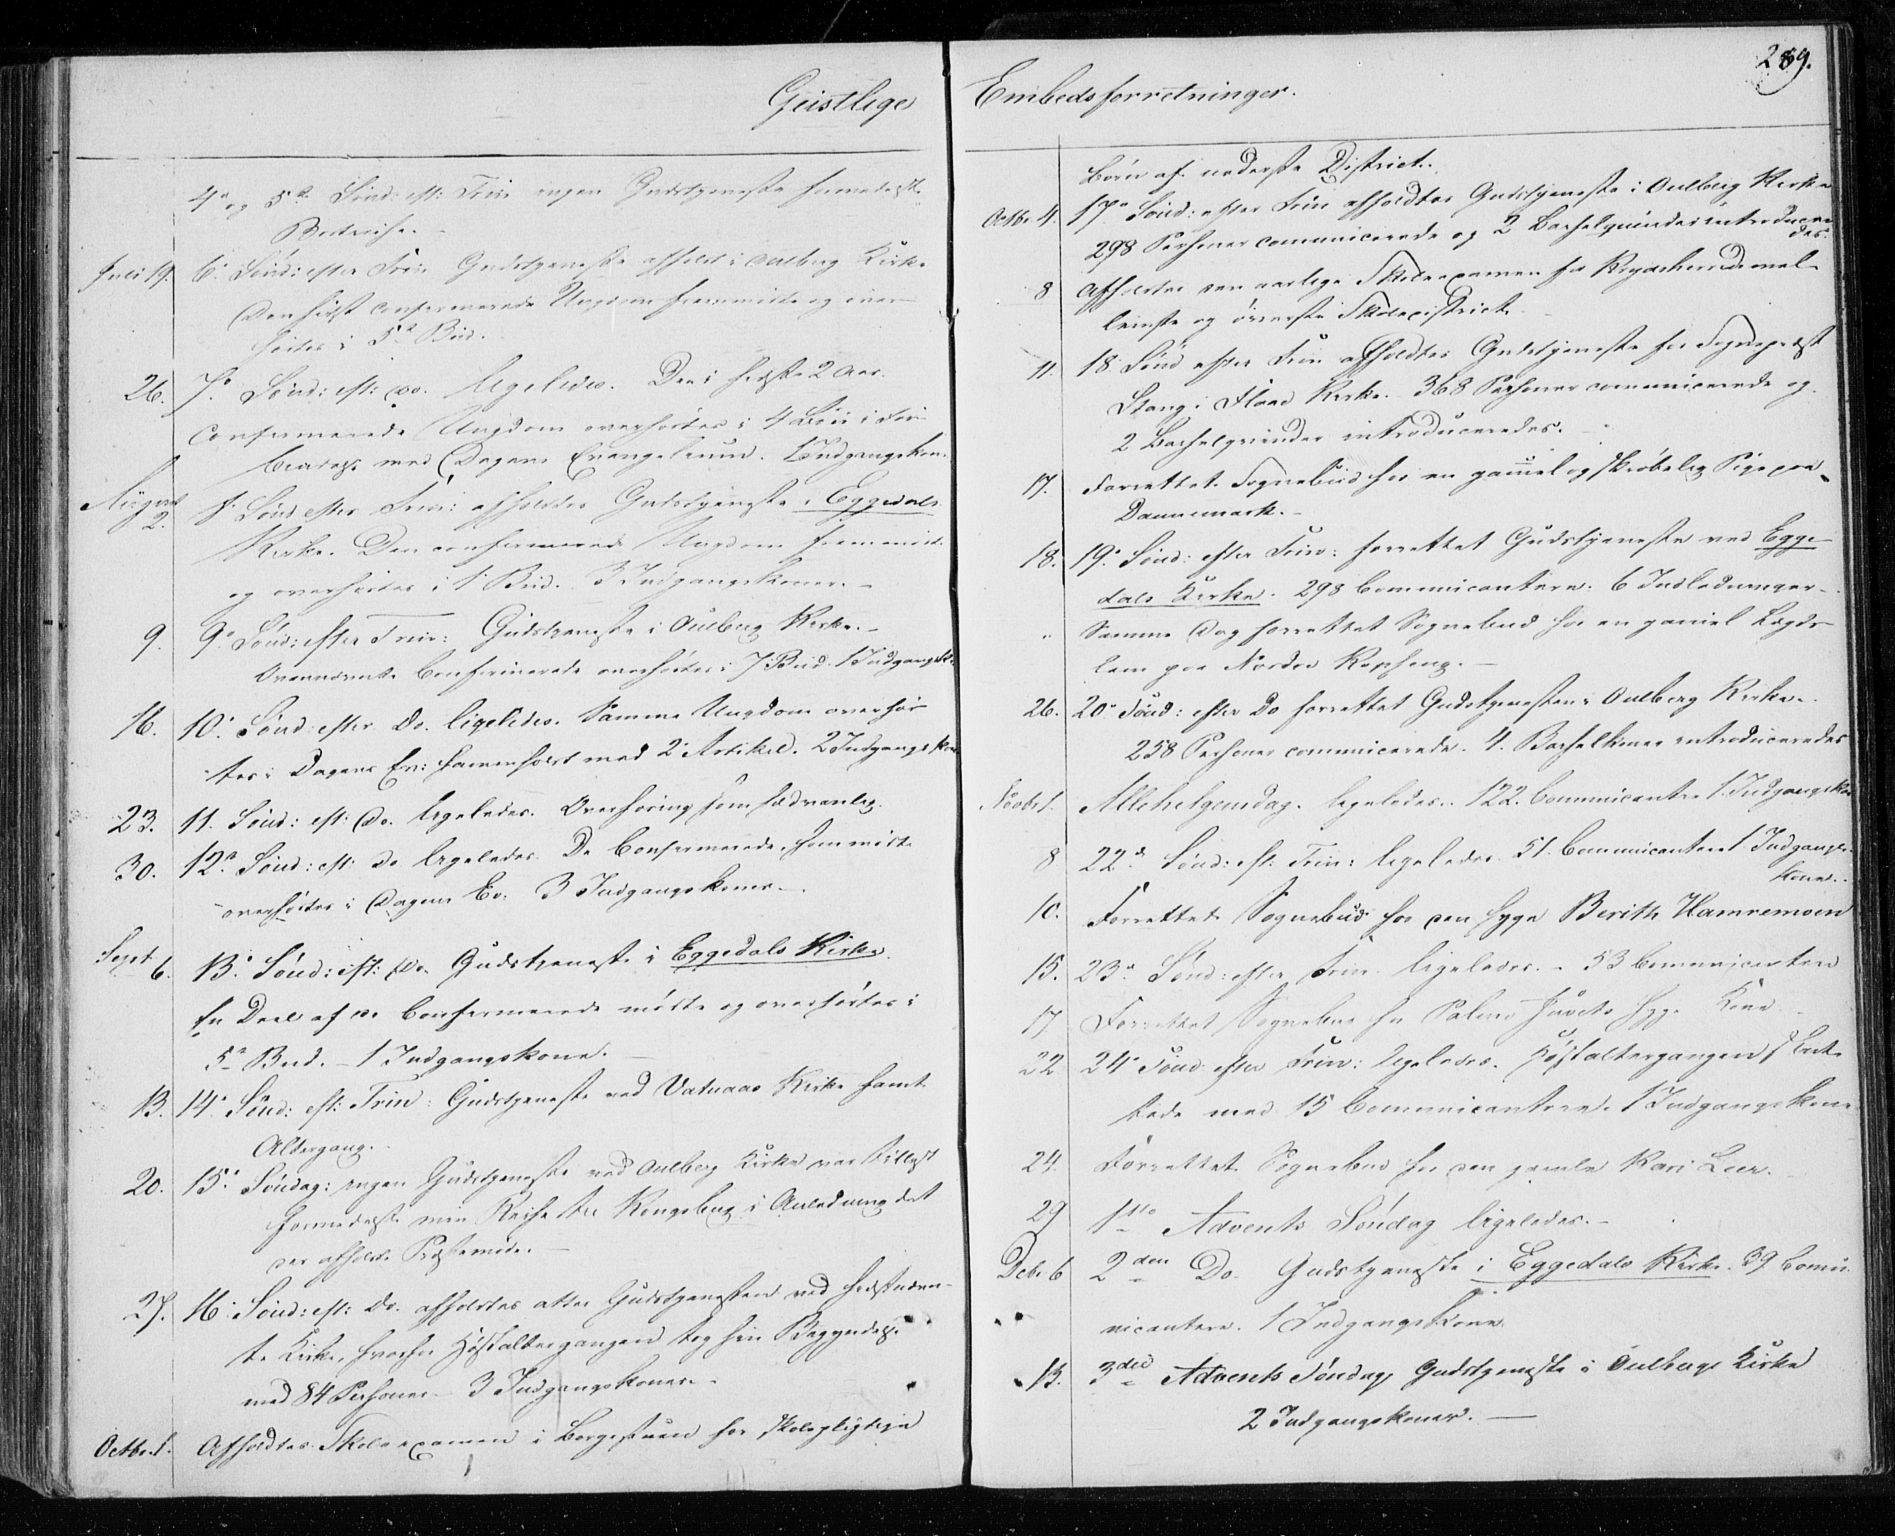 Geistlige
4de og 5te Sønd: eft: Trin ingen Gudstjeneste formedelst
Juli 19. 6. Sønd: efter Trin Gudstjeneste afholdt i Aulberg Kirke
Den sidst confirmerede Ungdom fremmødte og over-
hørtes i 5te Bud.
26. 7de Sønd: eft: do. ligeledes. De i sidste 2 Aar
Confirmerede Ungdom overhørtes i 4 Bøn i For-
bindelse med Dagens Evangelium. 1 Indgangskone
August 2. 8. Sønd efter Trin: afholdtes Gudstjeneste i Eggedals
Kirke. Den confirmerede Ungdom fremmødte
og overhørtes i 1. Bud. 3 Indgangskoner.
9. 9de Sønd: efter Trin: Gudstjeneste i Aulberg Kirke.
Ovennævnte Confirmerede overhørtes i 7 Bud. 1 Indgangsk.
16. 10de Sønd: efter Do. ligeledes. Samme Ungdom overhør-
tes i Dagens Ev: sammenholdt med 2. Artikel. 2 Indgangsk.
23. 11. Sønd: eft: Do. ligeledes. Overhøring som sædvanlig.
30. 12te Sønd: eft: do ligeledes. De Confirmerede, som mødte
overhørtes i Dagens Ev. 3 Indgangskoner.
Sept 6. 13. Sønd: eft: Do. Gudstjeneste i Eggedals Kirke.
En Deel af de Confirmerede mødte og overhørtes i
5te Bud. - 1 Indgangskone.
13. 14. Sønd: eft: Trin: Gudstjeneste ved Vatnaas Kirke samt
Altergang.
20. 15. Søndag: ingen Gudstjeneste ved Aulberg Kirke
formedelst min Reise til Kongsberg i Anledning det
der afholdte Præstemøde.
27. 16. Sønd: eft: Do. afholdtes atter Gudstjenesten ved sidstnævn-
te Kirke, hvorfor Høstaltergangen tog sin Begyndelse
med 84 Personer - 3 Indgangskoner.
Octbr 1. Afholdtes Skoleexamen i Borgestuen for skolepligtige
Embedsforretninger.
289.
Børn af nederste District.
Octbr 4. 17de Sønd: efter Trin afholdtes Gudstjeneste i Aulberg Kirke
298 Personer communicerede og 2 Barselqvinder introducere-
des.
8 Afholdtes den aarlige Skoleexamen for
og øverste Skoledistrict.
11. 18 Sønd efter Trin afholdtes Gudstjeneste for Sognepræst
Stang i Flaae Kirke. 368 Personer communicerede og
2 Barselqvinder introduceredes.
17. Forrettet Sognebud hos en gammel og skrøbelig Pige paa
Dannemark.
18. 19de Sønd: efter Trin: forrettet Gudstjeneste ved Egge-
dals Kirke. 298 Communicantere. 6 Indledninger.
" Samme Dag forrettet Sognebud hos en gammel Lægds-
lem paa Nordre
26. 20de Sønd: efter Do forrettet Gudstjenesten i Aulberg Kirke.
258 Personer communicerede. 4. Barselkoner introduceredes
Novbr 1. Allehelgensdag. ligeledes. 122. Communicantere 1. Indgangskone
8 22de Sønd: eft. Trin: ligeledes. 51. Communicantere 1 Indgangs-
kone.
10. Forrettet Sognebud hos den syge Berith Hamremoen
15. 23de Sønd: efter Trin. ligeledes. - 53 Communicantere
17 Forrettet Sognebud hos syge Kone
22 24de Sønd efter Trin: ligeledes. Høstaltergangen slut-
tede med 15 Communicantere. 1 Indgangskone
24. Forrettet Sognebud hos den gamle Kari Leer.
29 1ste Advents Søndag ligeledes.
Debr 6 2den Do. Gudstjeneste i Eggedals Kirke. 39 Commu-
nicantere. 1 Indgangskone
13. 3die Advents Søndag Gudstjeneste i Aulbergs Kirke
2 Indgangskoner.